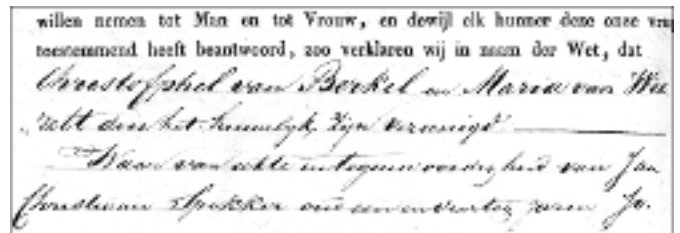 willen nemen tot Man en tot Vrouw, en dewijl elk hunner deze onze vra
toestemmend heeft beantwoord, zoo verklaren wij in naam der Wet, dat
Christoffhel van Borkel en Maria van Wee
zelt door het huwelyk zyn vereenigd
Waar van acte in tegenwoordigheid van Jan
Christiaan Spikker oud een en veertig jaren Jo.